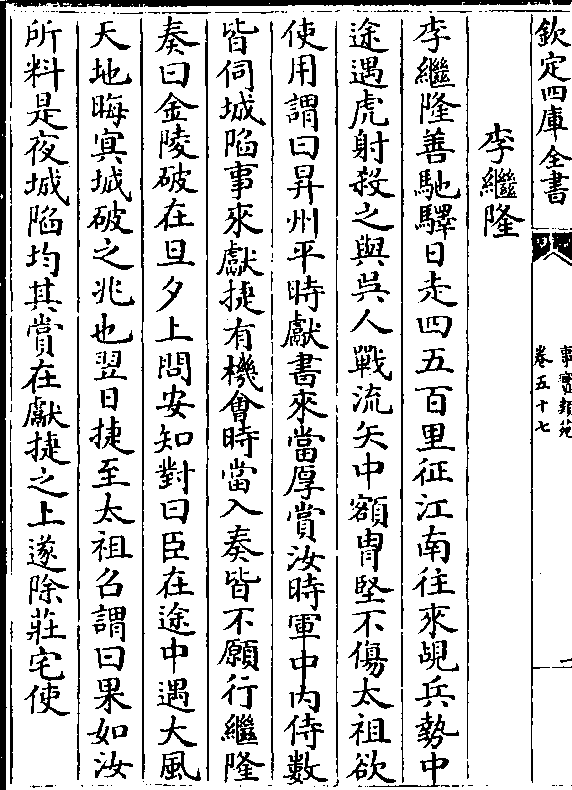 欽定四庫全書
事實類苑
卷五十七
李繼隆
李繼隆善馳驛日走四五百里征江南往來覘兵勢中
途遇虎射殺之與吳人戰流矢中額胄堅不傷太祖欲
使用謂曰昇州平時獻書來當厚賞汝時軍中内侍數
皆伺城陷事來獻捷有機會時當入奏皆不願行繼隆
奏曰金陵破在旦夕上問安知對曰臣在途中遇大風
天地晦㝠城破之兆也翌日捷至太祖召謂曰果如汝
所料是夜城陷均其賞在獻捷之上遂除莊宅使